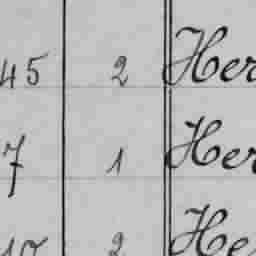 45 2 Her
7 1 Her
2 He